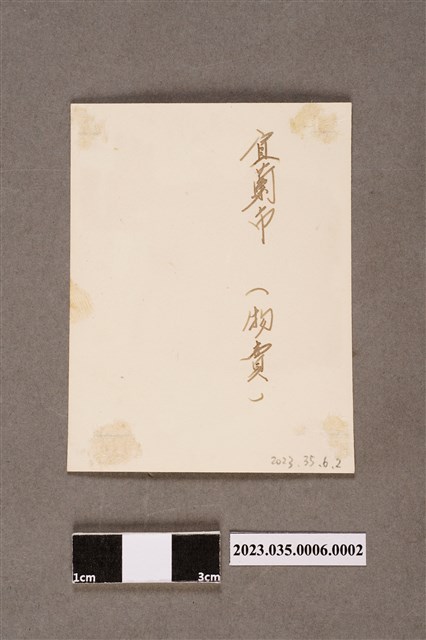 宜蘭市 (物賣)
2023.35.6.2
1cm 3cm
2023.035.0006.0002